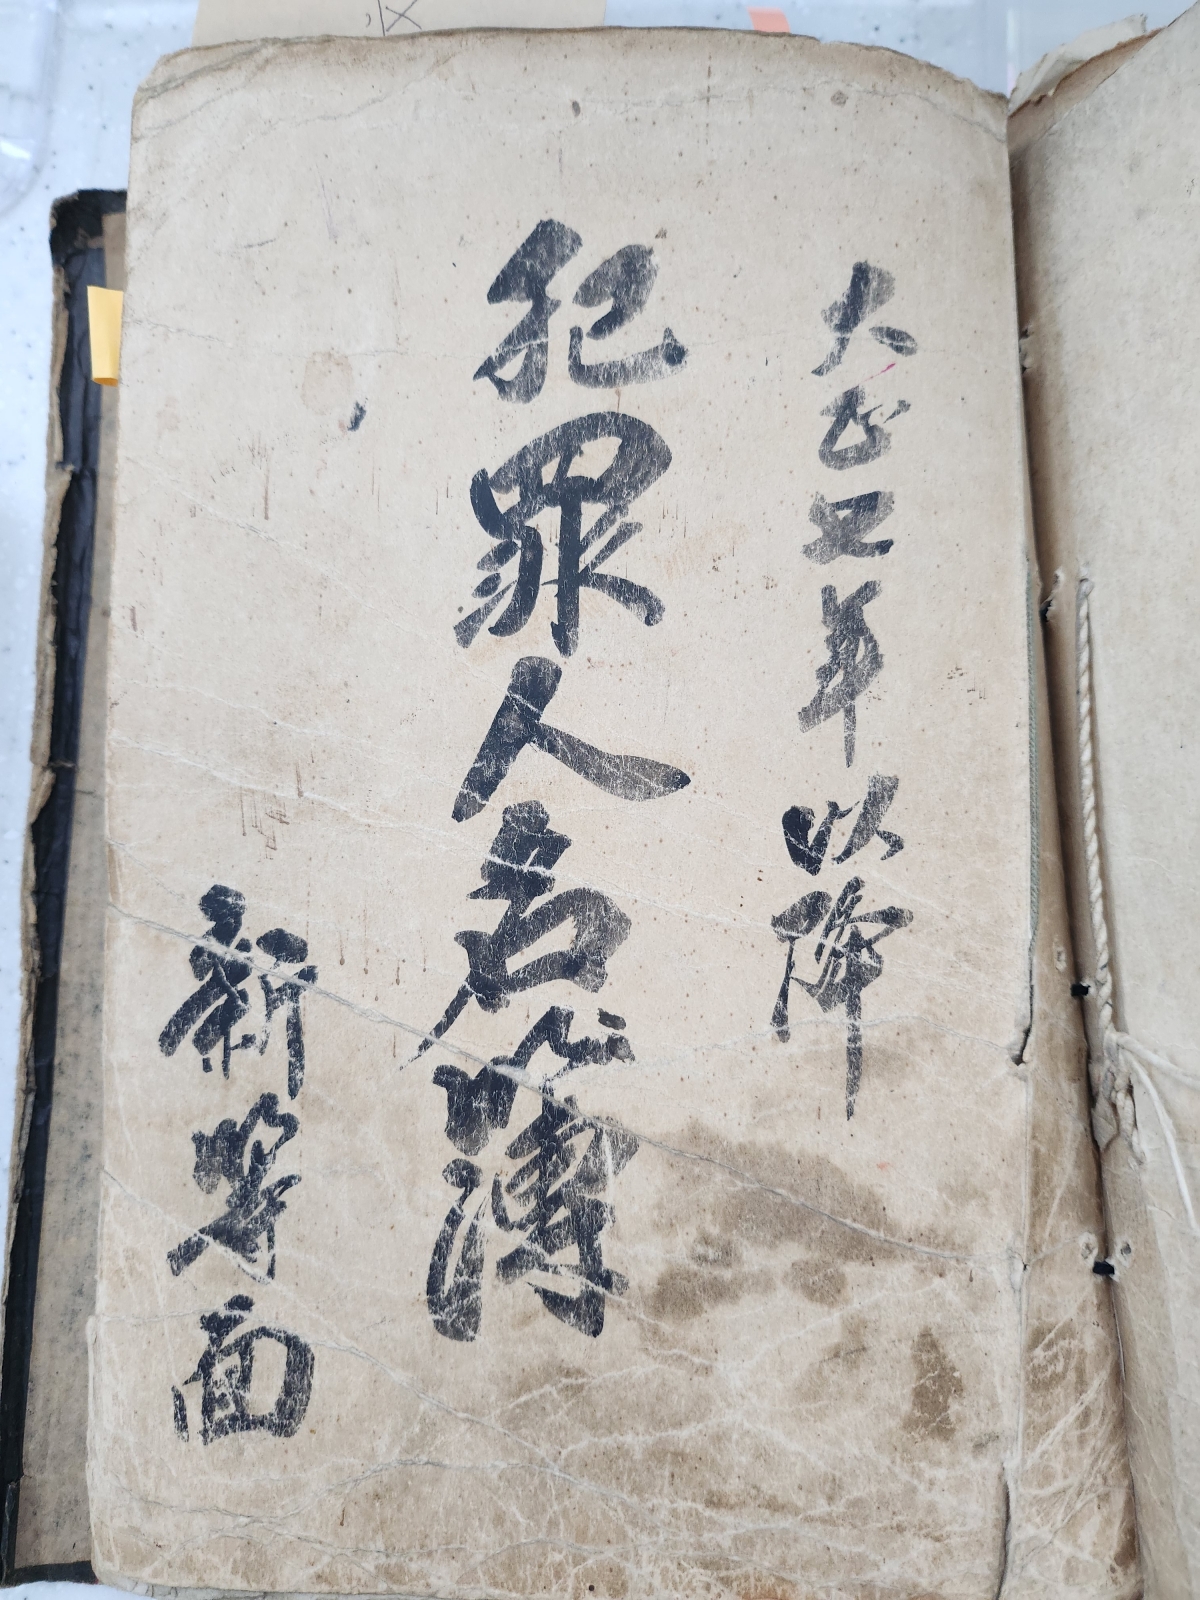 大正五年以降
犯罪人名簿
新等面